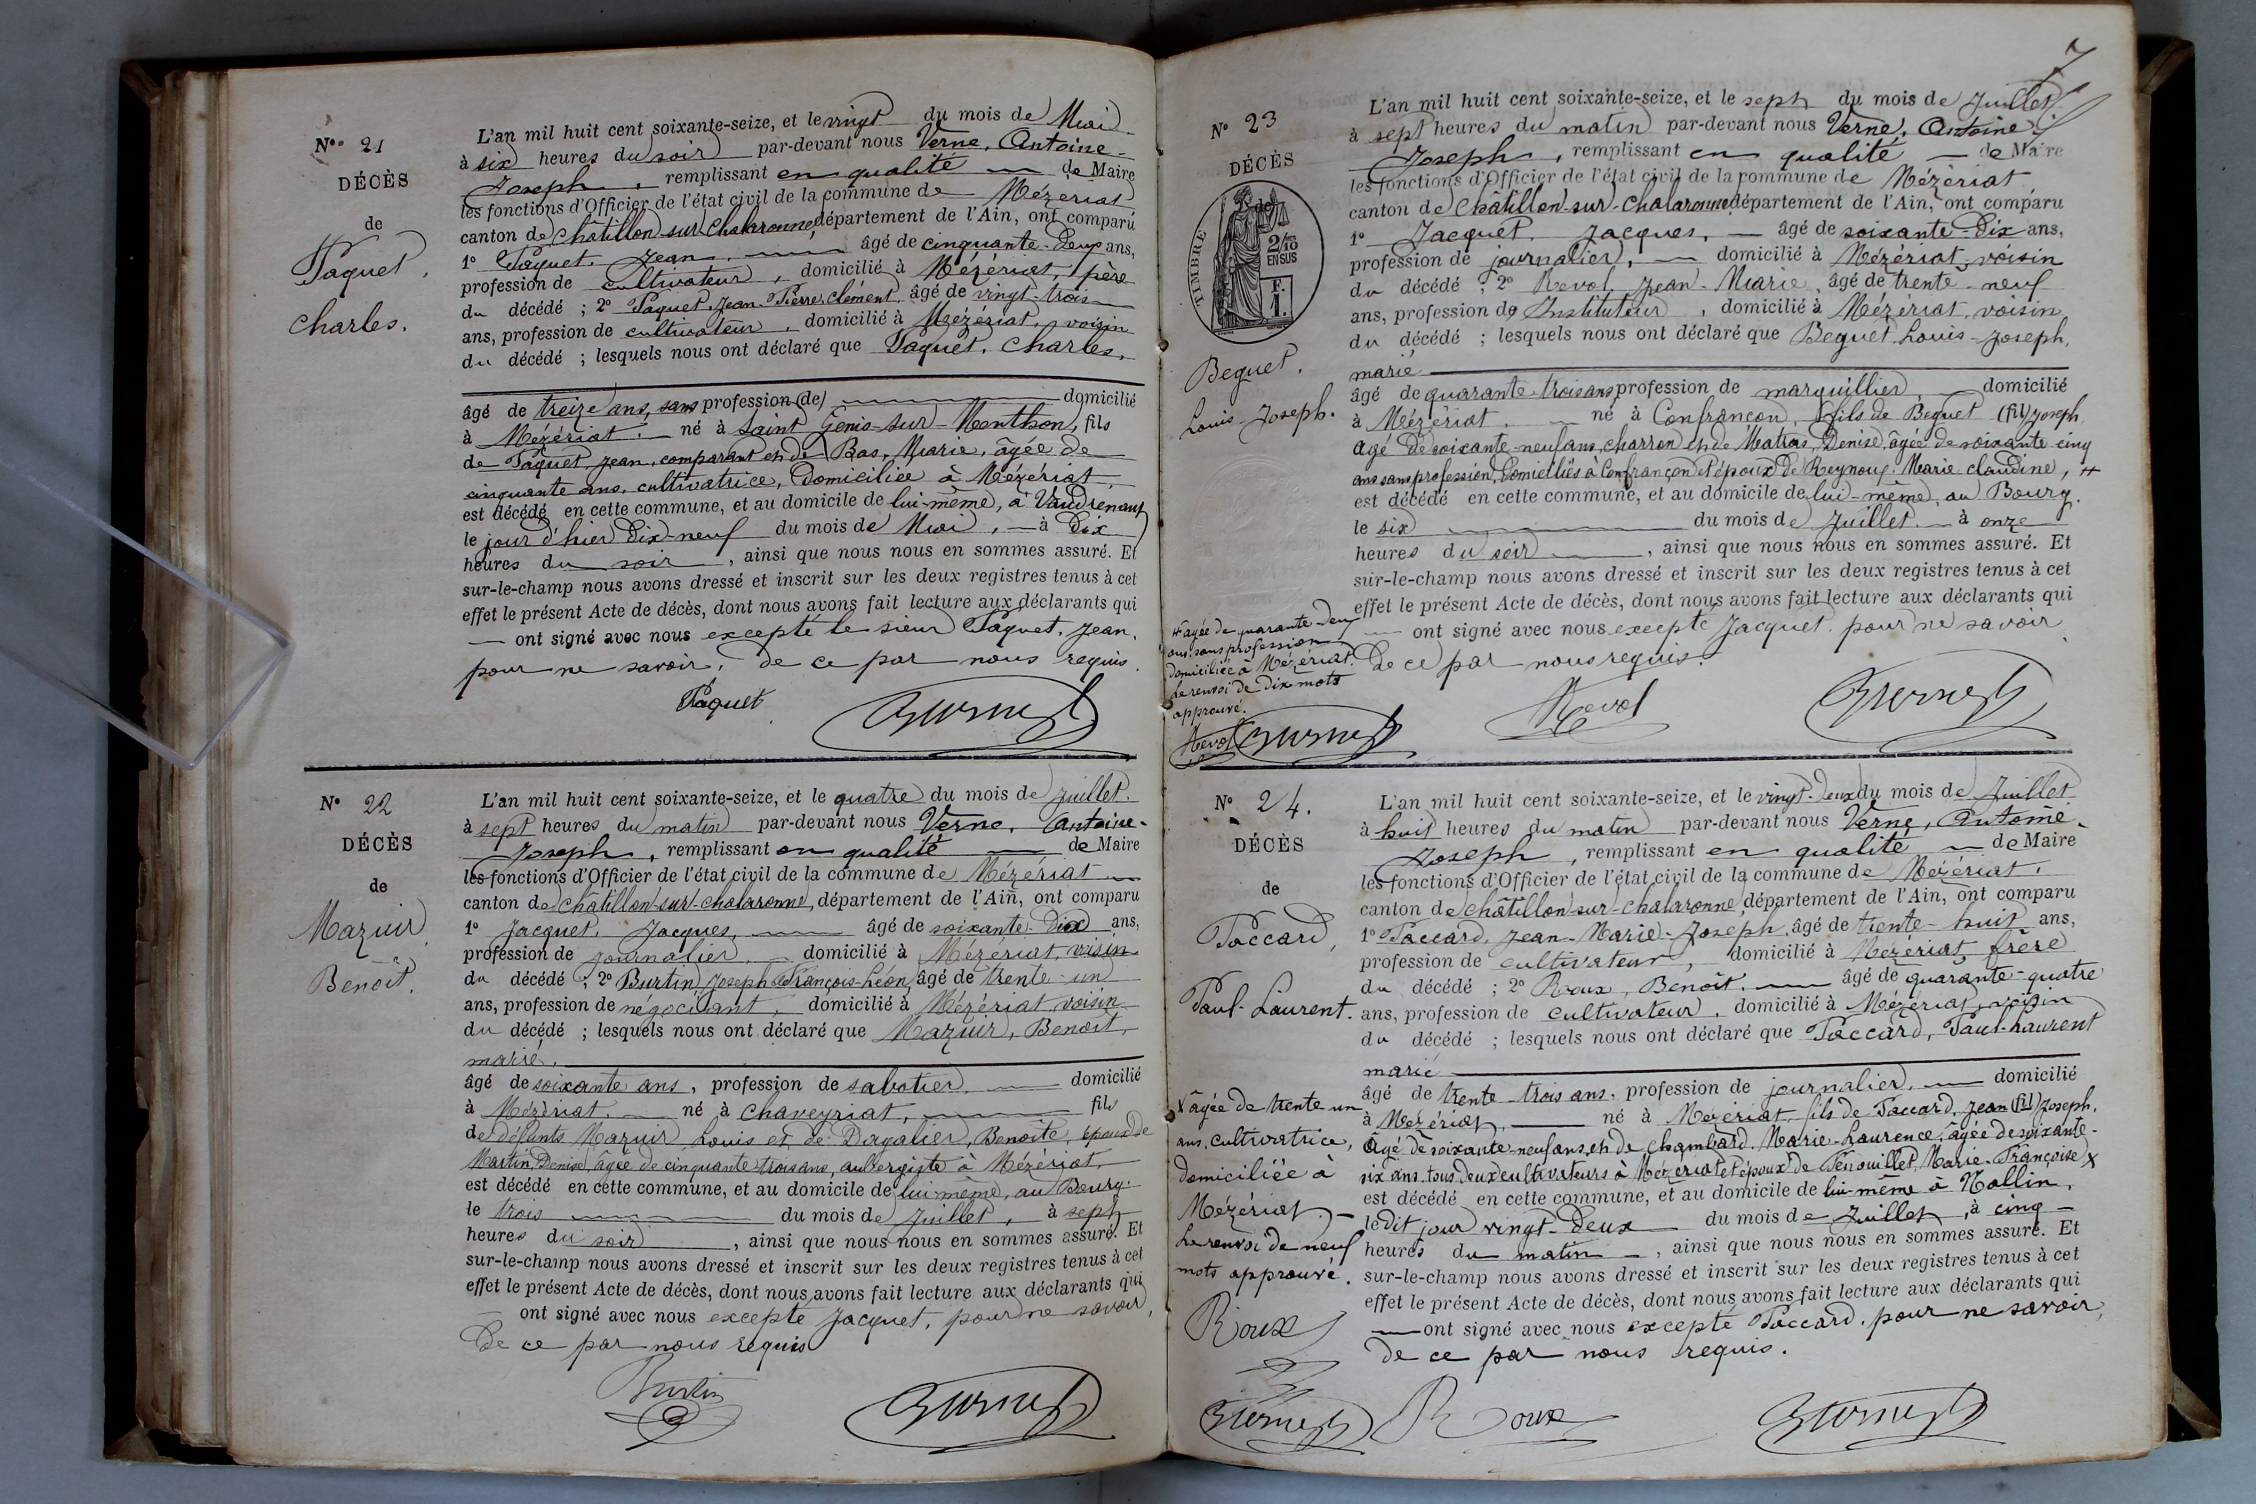 N° 21
DÉCÈS
de
Paquet,
Charles.
L'an mil huit cent soixante-seize, et le vingt du mois de Mai
à six heures du soir par-devant nous Verne, Antoine-
Joseph, remplissant en qualité de Maire
les fonctions d'Officier de l'état civil de la commune de Mézériat
canton de Châtillon-sur-Chalaronne, département de l'Ain, ont comparu
1° Paquet, Jean, âgé de cinquante-deux ans,
profession de cultivateur, domicilié à Mézériat, père
du décédé ; 2° Paquet, Jean-Pierre-Clément, âgé de vingt-trois
ans, profession de cultivateur, domicilié à Mézériat, voisin
du décédé ; lesquels nous ont déclaré que Paquet, Charles,
âgé de treize ans, sans profession (de) domicilié
à Mézériat, né à Saint Genis-sur-Menthon, fils
de Paquet, Jean, comparant et de Bas, Marie, âgée de
cinquante ans, cultivatrice, domiciliée à Mézériat,
est décédé en cette commune, et au domicile de lui-même, à Vaudrenans
le jour d'hier dix-neuf du mois de Mai, à dix
heures du soir, ainsi que nous nous en sommes assuré. Et
sur-le-champ nous avons dressé et inscrit sur les deux registres tenus à cet
effet le présent Acte de décès, dont nous avons fait lecture aux déclarants qui
ont signé avec nous excepté le sieur Paquet, Jean,
pour ne savoir, de ce par nous requis.
Paquet
N° 22
DÉCÈS
de
Mazuir,
Benoît.
L'an mil huit cent soixante-seize, et le quatre du mois de Juillet
à sept heures du matin par-devant nous Verne, Antoine-
Joseph, remplissant en qualité de Maire
les fonctions d'Officier de l'état civil de la commune de Mézériat
canton de Châtillon-sur-Chalaronne, département de l'Ain, ont comparu
1° Jacquet, Jacques, âgé de soixante-dix ans,
profession de journalier, domicilié à Mézériat, voisin
du décédé ; 2° Burtin, Joseph-François-Léon, âgé de trente-un
ans, profession de négociant, domicilié à Mézériat, voisin
du décédé ; lesquels nous ont déclaré que Mazuir, Benoît,
marié,
âgé de soixante ans, profession de sabotier, domicilié
à Mézériat, né à Chaveyriat, fils
de défunts Mazuir Louis et de Dagalier, Benoîte, époux de
Martin, Denise, âgée de cinquante-trois ans, aubergiste à Mézériat,
est décédé en cette commune, et au domicile de lui-même, au Bourg,
le trois du mois de Juillet, à sept
heures du soir, ainsi que nous nous en sommes assuré. Et
sur-le-champ nous avons dressé et inscrit sur les deux registres tenus à cet
effet le présent Acte de décès, dont nous avons fait lecture aux déclarants qui
ont signé avec nous excepté Jacquet, pour ne savoir,
de ce par nous requis
Burtin
7
N° 23
DÉCÈS
de
TIMBRE
2/10
EN SUS
F.
1.
Bequet,
Louis-Joseph.
L'an mil huit cent soixante-seize, et le sept du mois de Juillet
à sept heures du matin par-devant nous Verne, Antoine-
Joseph, remplissant en qualité de Maire
les fonctions d'Officier de l'état civil de la commune de Mézériat
canton de Châtillon-sur-Chalaronne, département de l'Ain, ont comparu
1° Jacquet, Jacques, âgé de soixante-dix ans,
profession de journalier, domicilié à Mézériat, voisin
du décédé ; 2° Revol, Jean-Marie, âgé de trente-neuf
ans, profession de Instituteur, domicilié à Mézériat, voisin
du décédé ; lesquels nous ont déclaré que Bequet, Louis-Joseph,
marié
âgé de quarante-trois ans profession de marguillier domicilié
à Mézériat, né à Confrançon, fils de Bequet (fil) Joseph
âgé de soixante-neuf ans, charron et de Matras, Denise, âgée de soixante-cinq
ans sans profession, domiciliés à Confrançon et époux de Reynoux, Marie-Claudine, #
est décédé en cette commune, et au domicile de lui-même, au Bourg,
le six du mois de Juillet à onze
heures du soir, ainsi que nous nous en sommes assuré. Et
sur-le-champ nous avons dressé et inscrit sur les deux registres tenus à cet
effet le présent Acte de décès, dont nous avons fait lecture aux déclarants qui
ont signé avec nous excepté Jacquet, pour ne savoir,
de ce par nous requis.
# âgée de quarante-deux
ans, sans profession
domiciliée à Mézériat.
Le renvoi de dix mots
approuvé.
Revol
Revol
N° 24.
DÉCÈS
de
Paccard,
Paul-Laurent.
L'an mil huit cent soixante-seize, et le vingt-deux du mois de Juillet
à huit heures du matin par-devant nous Verne, Antoine-
Joseph, remplissant en qualité de Maire
les fonctions d'Officier de l'état civil de la commune de Mézériat,
canton de Châtillon-sur-Chalaronne, département de l'Ain, ont comparu
1° Paccard, Jean-Marie-Joseph, âgé de trente-huit ans,
profession de cultivateur, domicilié à Mézériat, frère
du décédé ; 2° Roux, Benoît, âgé de quarante-quatre
ans, profession de cultivateur, domicilié à Mézériat, voisin
du décédé ; lesquels nous ont déclaré que Paccard, Paul-Laurent
marié
âgé de trente-trois ans, profession de journalier, domicilié
à Mézériat, né à Mézériat, fils de Paccard, Jean (fil) Joseph,
âgé de soixante-neuf ans, et de Chambard, Marie-Laurence, âgée de soixante-
six ans, tous deux cultivateurs à Mézériat et époux de Fenouillet, Marie-Françoise X
est décédé en cette commune, et au domicile de lui-même à Mollin,
le dit jour vingt-deux du mois de Juillet, à cinq
heures du matin, ainsi que nous nous en sommes assuré. Et
sur-le-champ nous avons dressé et inscrit sur les deux registres tenus à cet
effet le présent Acte de décès, dont nous avons fait lecture aux déclarants qui
ont signé avec nous excepté Paccard, pour ne savoir,
de ce par nous requis.
X âgée de trente-un
ans, cultivatrice,
domiciliée à
Mézériat,
Le renvoi de neuf
mots approuvé.
Roux
Roux